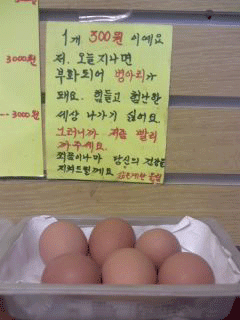 3000원
3000원
1개 300원 이예요
저, 오늘지나면
부화되어 병아리가
돼요. 힘들고 험난한
세상 나가기 싫어요.
그러니까 저를 빨리
까주세요.
최종이나마 당신의 건강을
지켜드릴께요